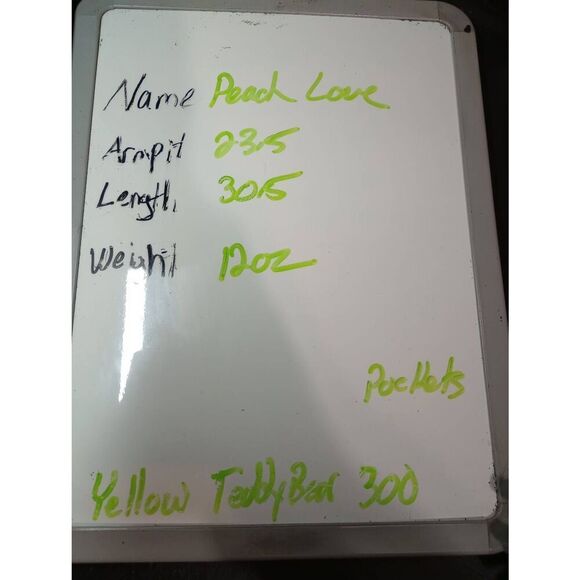 Name Peach Love
Armpit 23.5
Length 30.5
Weight 12oz
Pockets
Yellow TeddyBear 300